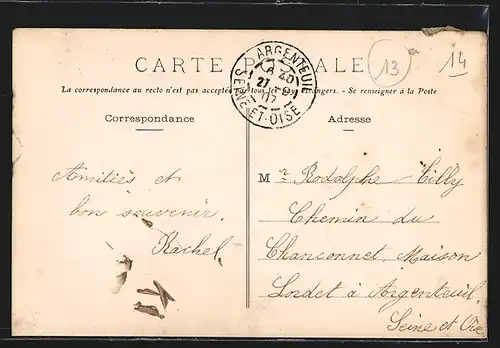 CARTE POSTALE
La correspondance au recto n'est pas acceptée par tous les pays étrangers. - Se renseigner à la Poste
ARGENTEUIL
27
07
SEINE-ET-OISE
13
14
Correspondance
Amitiés et
bon souvenir.
Rachel
Adresse
Mr Rodolphe Tilly
Chemin du
Chanconnet, Maison
Lordet à Argenteuil
Seine et Oise